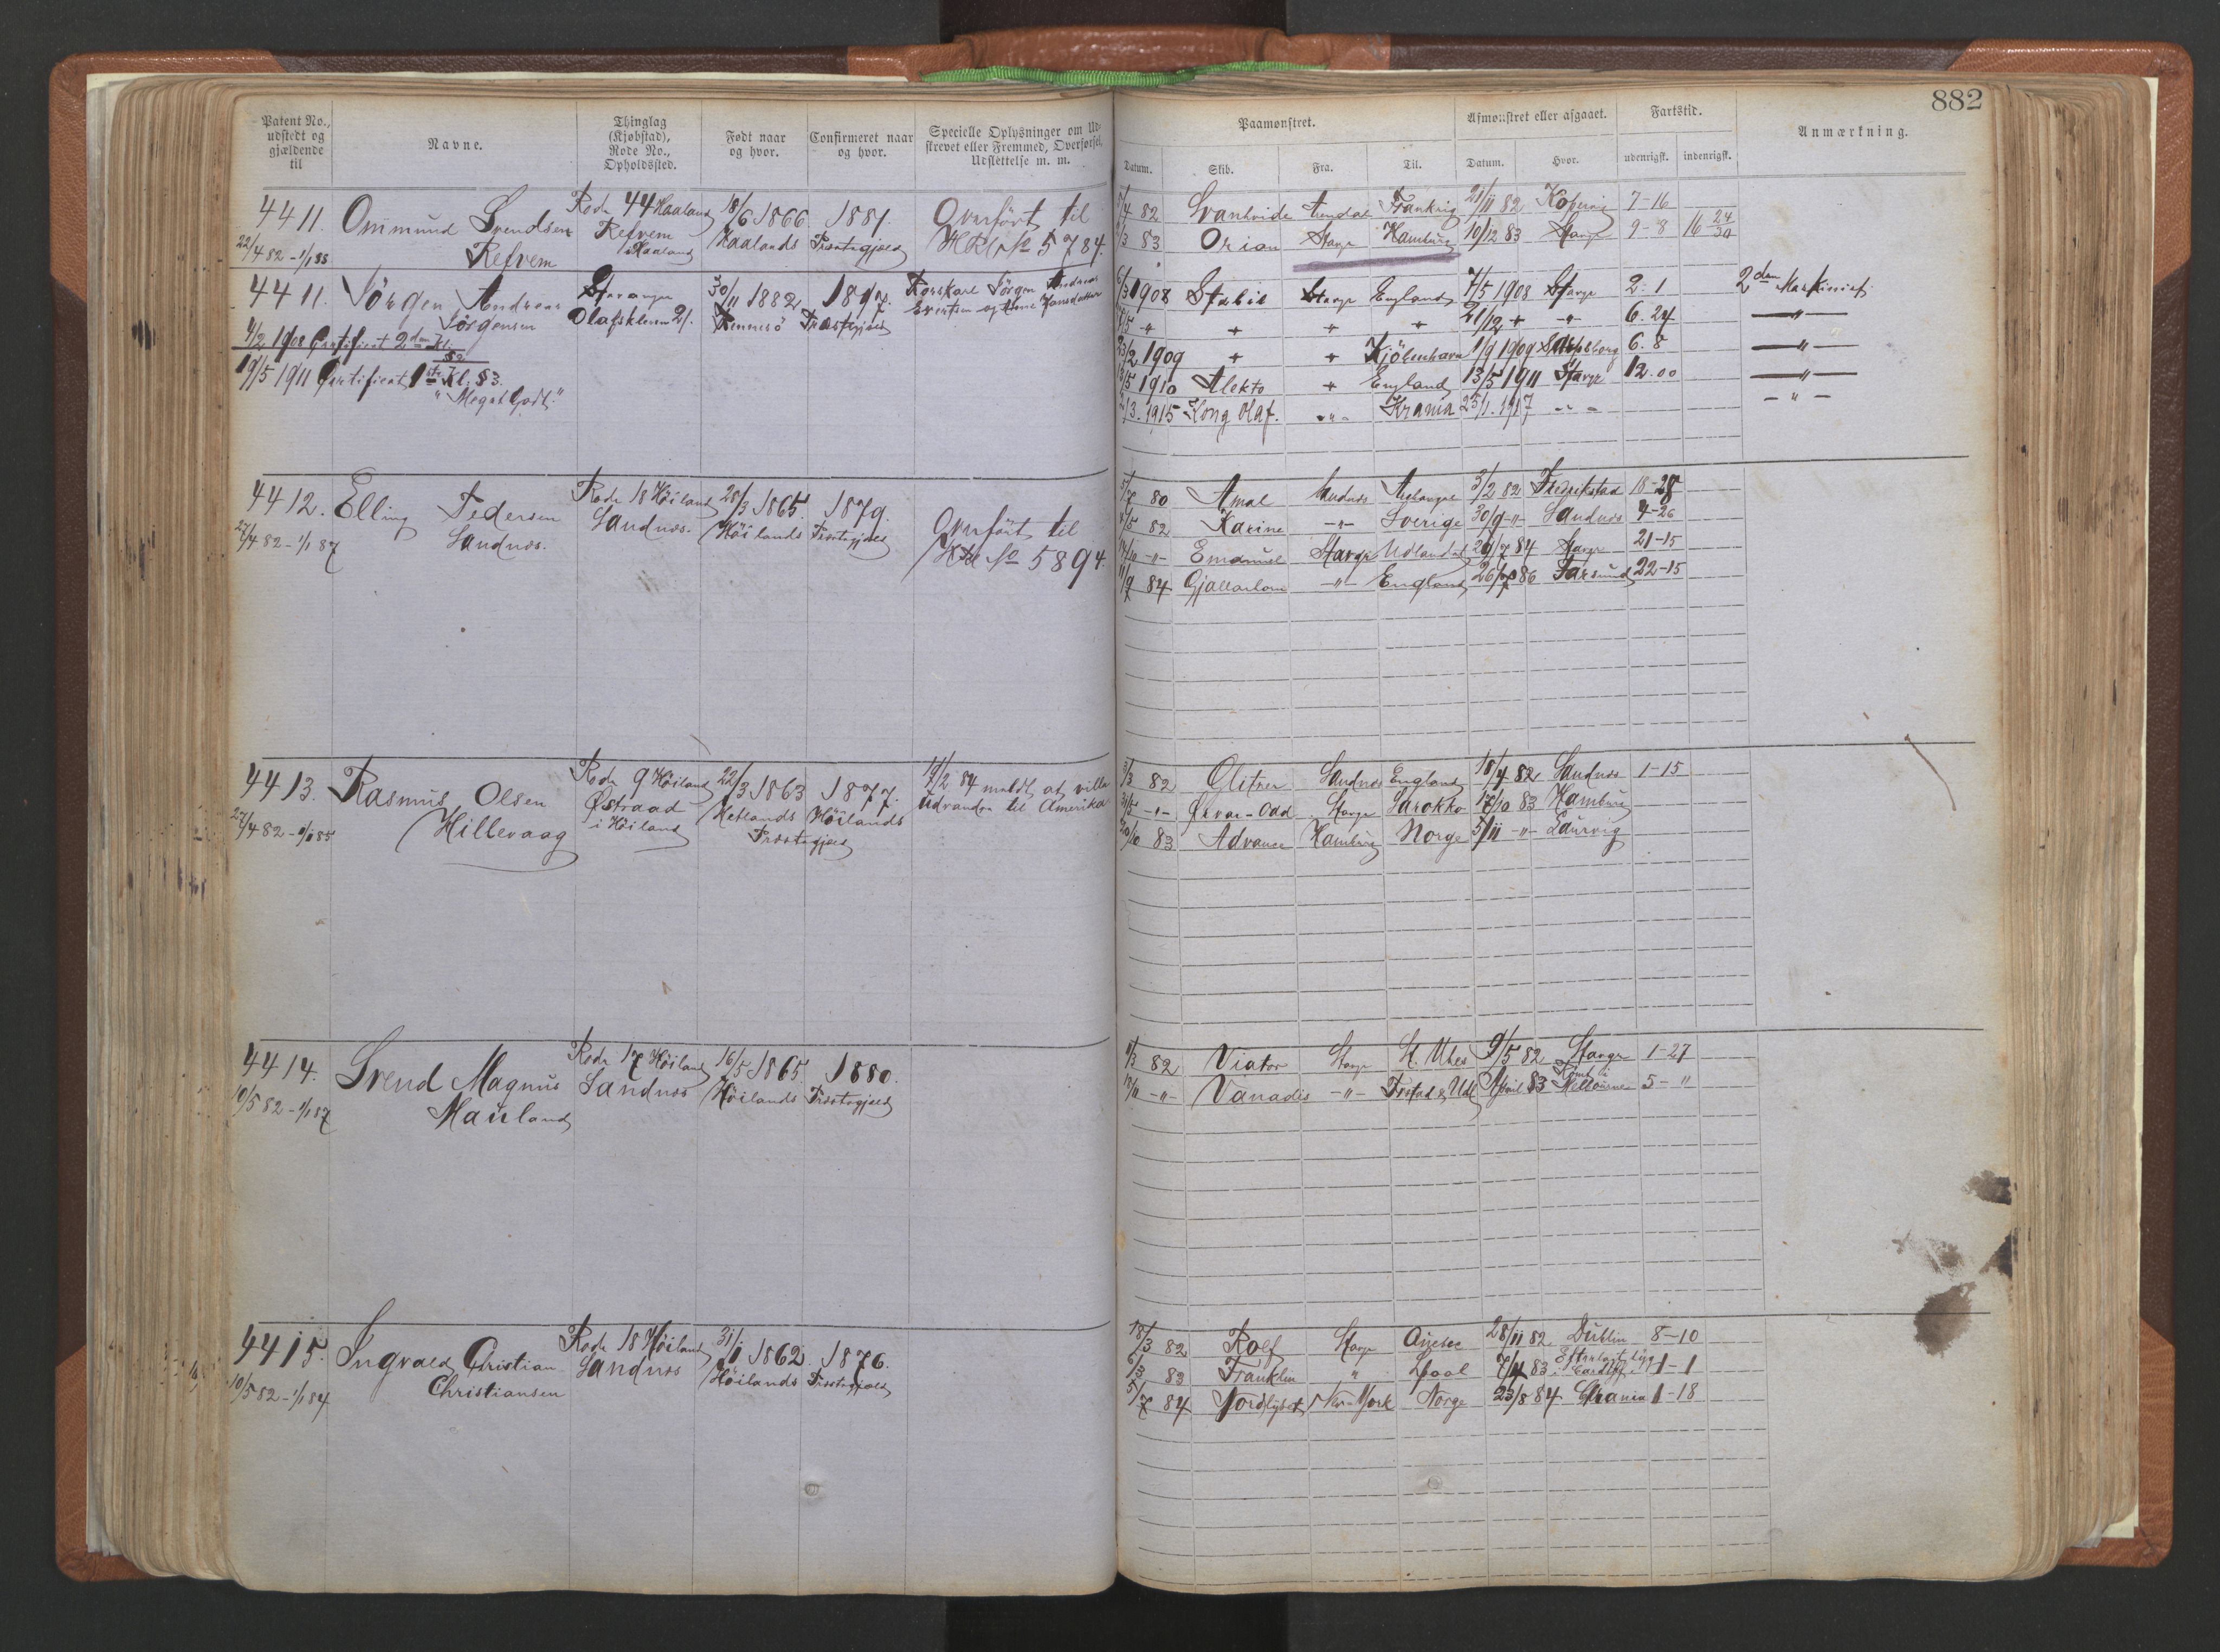 882
Patent No., udstedt og gjældende til
Navne.
Thinglag (Kjøbstad), Rode No., Opholdssted.
Født naar og hvor.
Confirmeret naar og hvor.
Specielle Oplysninger om Udskrevet eller Fremmed, Overførsel, Udslettelse m. m.
Paamønstret.
Afmønstret eller afgaaet.
Fartstid.
Anmærkning.
Datum.
Skib.
Fra.
Til.
Datum.
Hvor.
udenrigsk.
indenrigsk.
4411. Ommund Svendsen Rode 44 Haaland 18/6 1866. 1881. Overført til
22/4 82 - 1/1 88 Refvem Refvem i Haaland Haalands Præstegjeld HR No 5784.
/4 82 Svanhvide Arendal Frankrig 21/11 82 Kopervig 7-16
/3 83 Orion Stavgr Hamburg 10/12 83 Stavgr 9-8 16 24/30
4411. Jörgen Andreas Stavanger 30/11 1882 1897. Forskarl Jörgen Andreas
Jörgensen Olafskleven 21. Rennesö Præstegjeld Evertsen og Anne Jansdatter
4/2 1908 Certificat 2den Kl. § 2
19/5 1911 Certificat 1ste Kl. § 3.
"Meget Godt."
6/3 1908 Stabil Stavgr England 7/5 1908 Stavgr 2. 1 2den Maskinist
7/5 " + + + 21/12 + " 6. 24 — " —
23/2 1909 + + Kjöbenhavn 1/9 1909 Sarpsborg 6. 8 — " —
/5 1910 Alekto + England 13/5 1911 Stavgr 12. 00 — " —
/3. 1915 Kong Olaf. - " - Krania 25/1. 1917 - " - - " -
4412. Elling Pedersen Rode 18 Höiland 28/3 1865. 1879. Overført til
27/4 82 - 1/1 87 Sandnæs. Sandnæs. Höilands Præstegjeld HR No 5894.
5/7 80 Amal Sandnæs Archangel 3/2 82 Fredrikstad 18-28
/5 82 Karine - " - Sverige 30/9 - " - Sandnæs 4-26
/10 - " - Emanuel Stavgr Udlandet 29/7 84 Stavgr 21-15
11/9 84 Gjallarhorn - " - England 26/7 86 Farsund 22-15
4413. Rasmus Olsen Rode 9 Höiland 22/3 1863 1877. 14/2 84 meldt at ville
27/4 82 - 1/1 85 Hillevaag Østraad i Höiland Hetlands Höilands Præstegjeld Udvandre til Amerika
3/3 82 Glitner Sandnæs England 18/4 82 Sandnæs 1-15
31/5 - " - Ørvar-Odd Stavgr Marokko 17/10 83 Hamburg
20/10 83 Advance Hamburg Norge 5/11 - " - Laurvig
4414. Svend Magnus Rode 17 Höiland 16/5 1865. 1880.
10/5 82 - 1/1 87 Mauland Sandnæs Höilands Præstegjeld
/3 82 Viator Stavgr St. Ubes 9/5 82 Stavgr 1-27
18/11 - " - Vanadis - " - Frstad & Udl April 83 Rømt i Melbourne 5- "
4415. Ingvald Christian Rode 18 Höiland 31/1 1862. 1876.
10/5 82 - 1/1 84 Christiansen Sandnæs Höilands Præstegjeld
18/3 82 Rolf Stavgr 28/11 82. Dublin 8-10
6/3 83 Franklin " Lpool 7/4 83 Efterladt syg i Cardiff 1-1
5/7 84 Nordlyset New-York Norge 23/8 84 Chrania 1-18